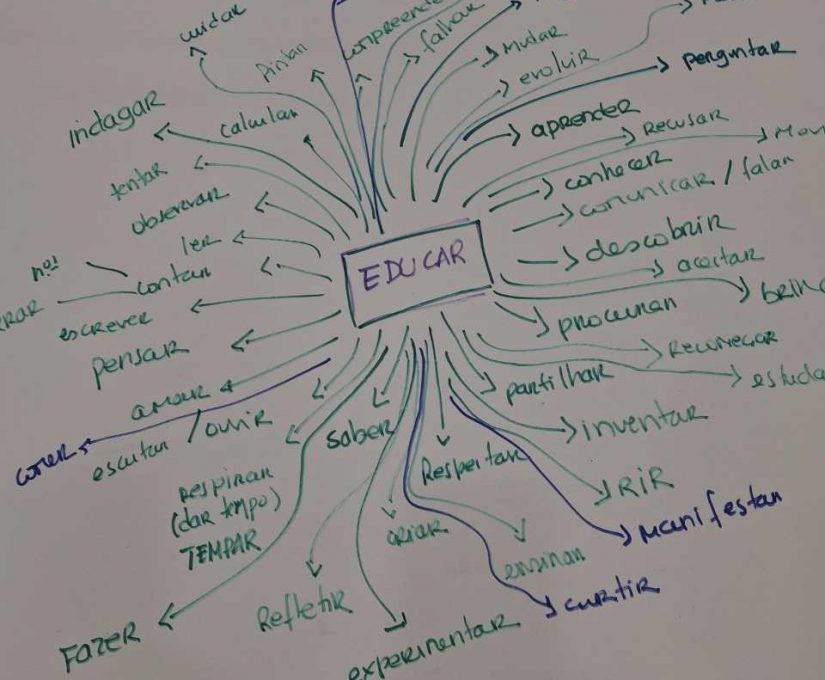 cuidar
Pintar
compreende
falhar
Mudar
evoluir
perguntar
indagar
calcular
aprender
Recusar
Mov
tentar
conhecer
comunicar / falar
observar
EDUCAR
descobrir
ler
aceitar
nos!
contar
RRAR
brinc
escrever
procurar
Recomeçar
pensar
estuda
partilhar
amar
inventar
comer
escutar / ouvir
saber
Respeitar
RIR
Respirar
(dar tempo)
TEMPAR
Manifestar
criar
ensinar
curtir
Refletir
FAZER
experimentar